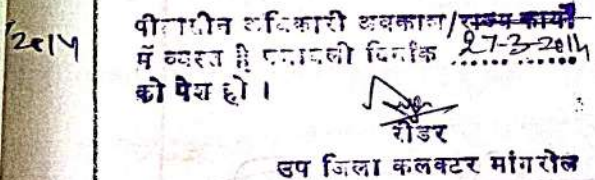 2014
पीठासीन अधिकारी अवकाश/राज्य कार्यो
में व्यस्त है पत्रावली दिनांक 27-3-2014
को पेश हो ।
रीडर
उप जिला कलक्टर मांगरोल